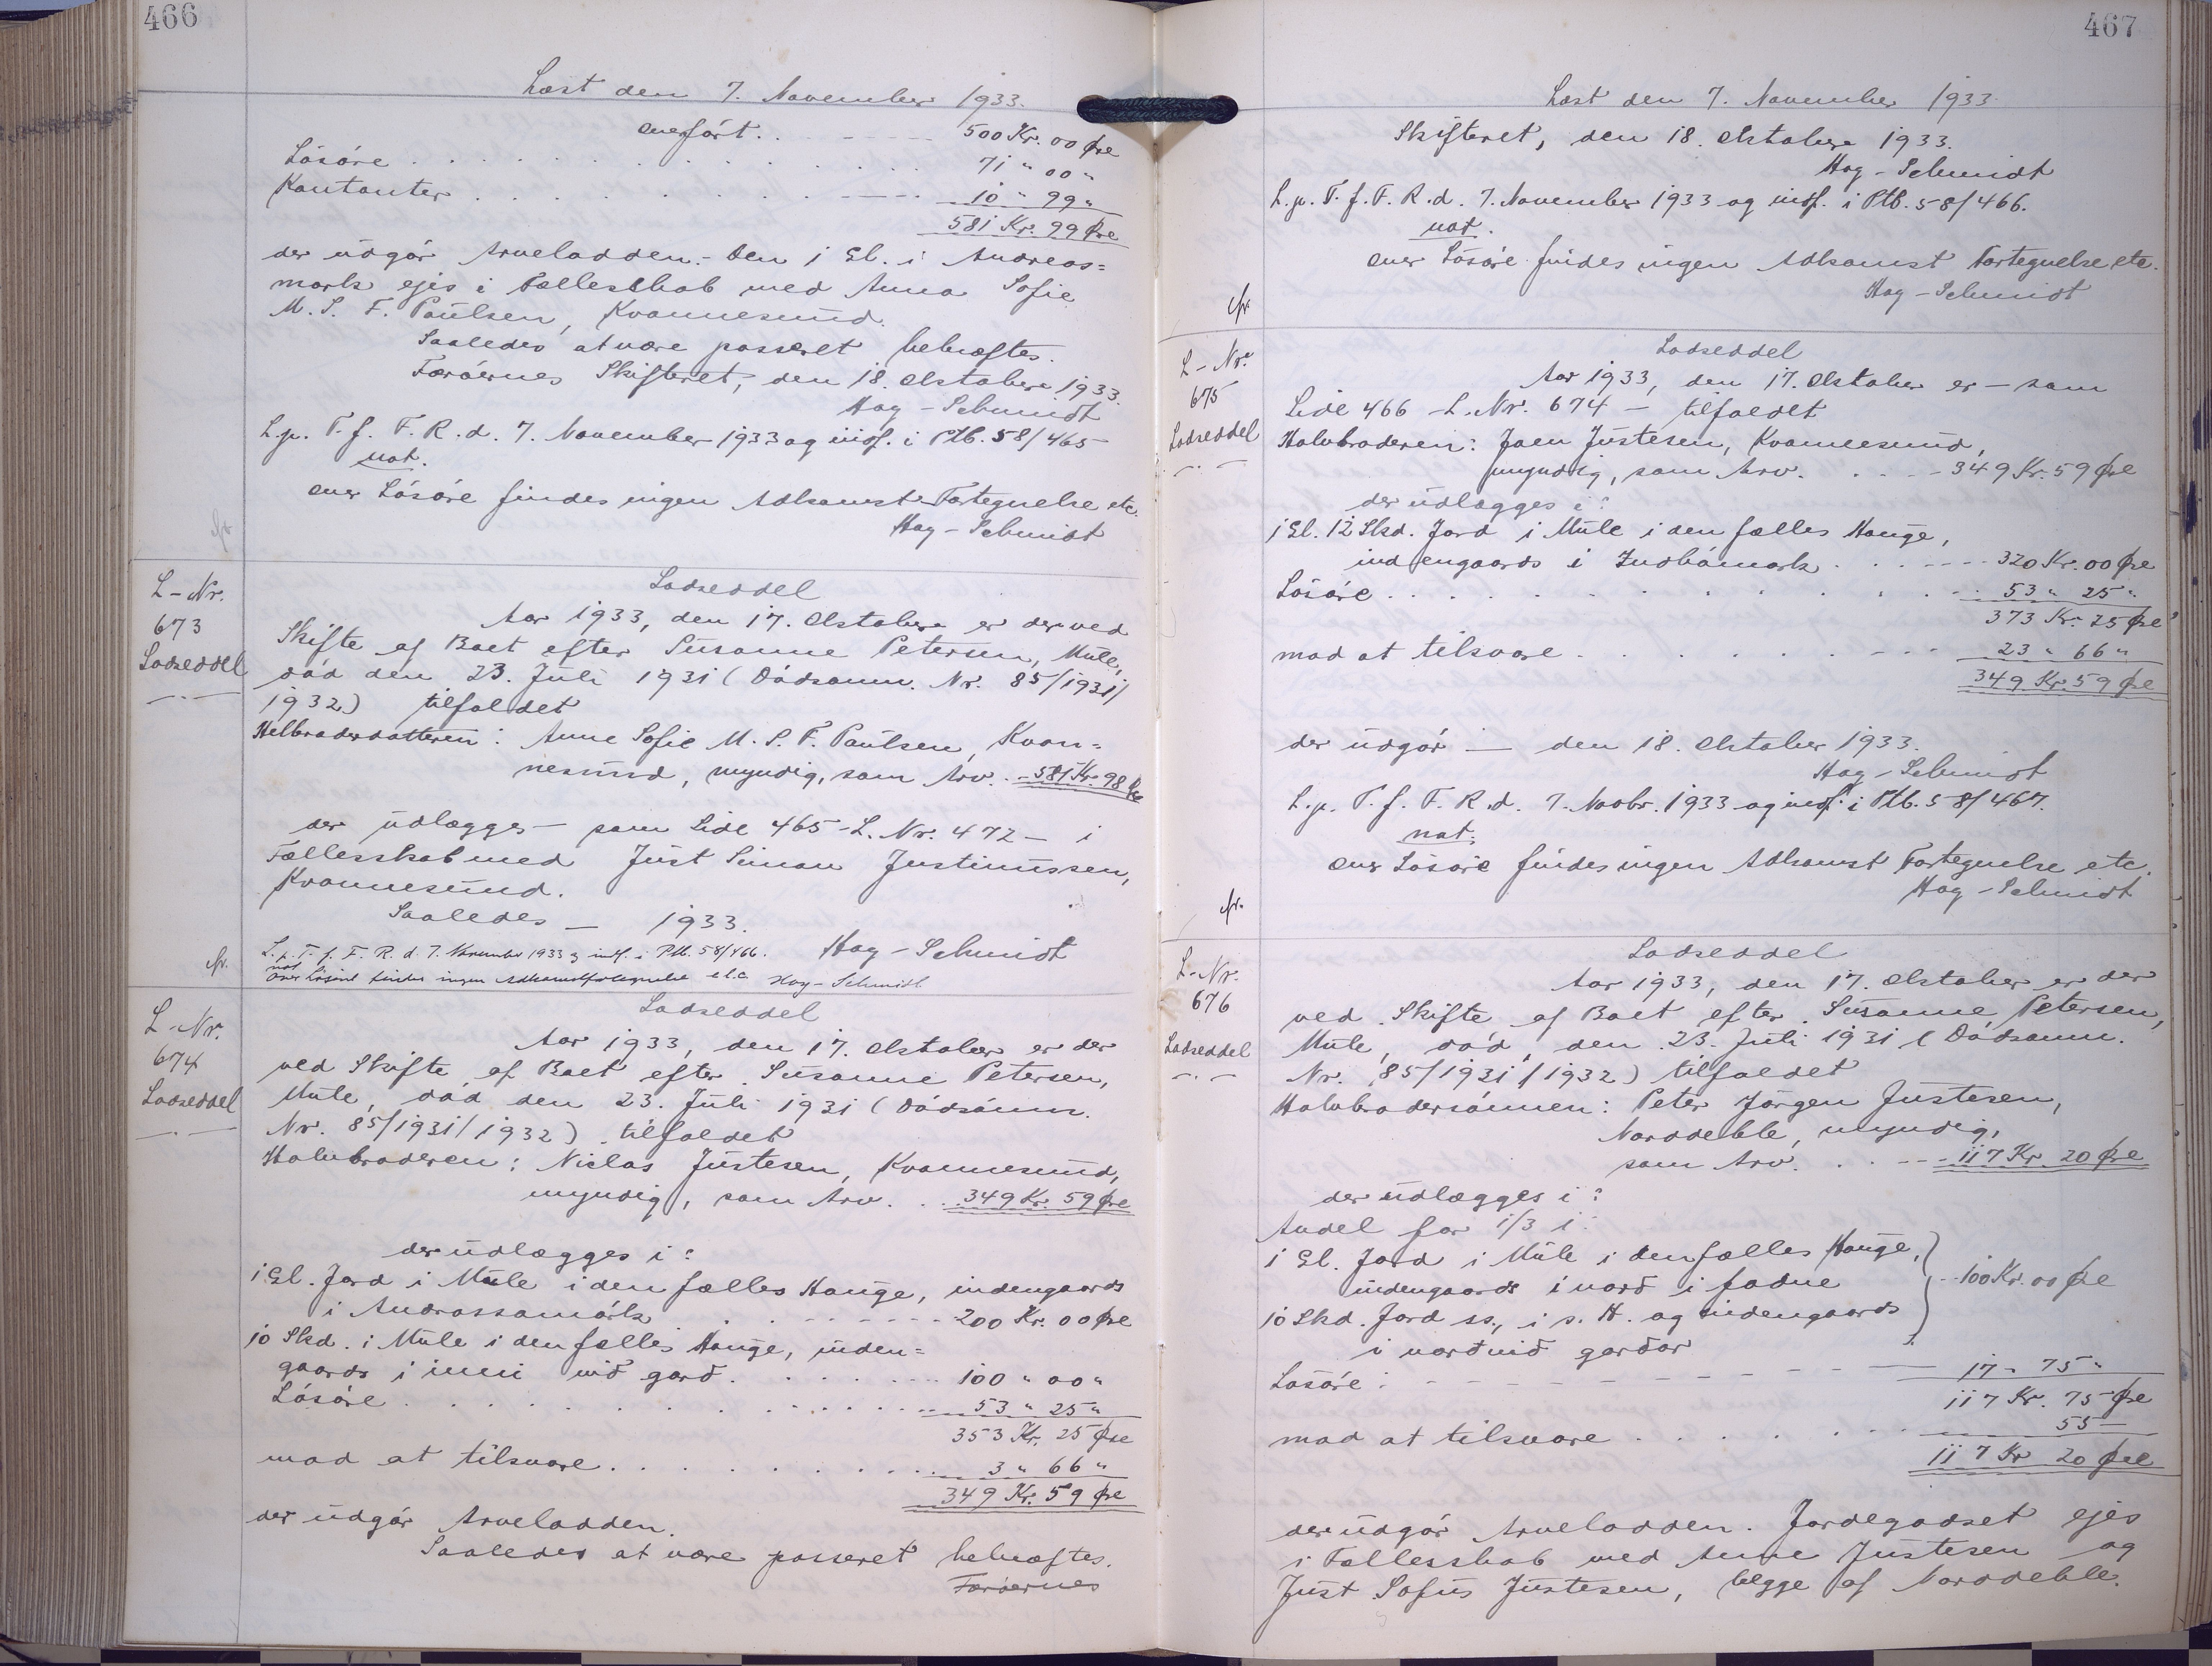 466
Læst den 7. November 1933.
overført . . 500 Kr. 00 Øre
Løsøre . . . 71 " 00 "
Kontanter . . . 10 " 99 "
581 Kr. 99 Øre
der udgør Arvelodden. - Den 1 Gl. i Andreas=
mark ejes i Fællesskab med Anna Sofie
M. S. F. Paulsen, Kvannesund.
Saaledes at være passeret bekræftes.
Færøernes Skifteret, den 18. Oktober 1933.
Høg-Schmidt
L. p. T. f. F. R. d. 7. November 1933 og indf. i Ptb. 58/465
not.
over Løsøre findes ingen Adkomst-Fortegnelse etc.
Høg-Schmidt
L-Nr.
673
Lodseddel
Lodseddel
Aar 1933, den 17. Oktober er der ved
Skifte af Boet efter Susanne Petersen, Mule,
død den 23. Juli 1931 (Dødsanm. Nr. 85/1931/
1932) tilfaldet
Helbroderdatteren: Anne Sofie M. S. F. Paulsen, Kvan=
nesund, myndig, som Arv. 581 Kr. 98 Øre
der udlægges - som Side 465 - L. Nr. 472 - i
Fællesskab med Just Simon Justinussen,
Kvannesund.
Saaledes — 1933.
Høg-Schmidt
L. p. T. f. F. R. d. 7. November 1933 og indf. i Ptb. 58/466.
not
Over Løsøre findes ingen Adkomstfortegnelse etc. Høg-Schmidt.
L-Nr.
674
Lodseddel
Lodseddel
Aar 1933, den 17. Oktober er der
ved Skifte af Boet efter Susanne Petersen,
Mule, død den 23. Juli 1931 (Dødsanm.
Nr. 85/1931/1932) tilfaldet
Halvbroderen: Niclas Justesen, Kvannesund,
myndig, som Arv. . . 349 Kr. 59 Øre
der udlægges i:
1 Gl. Jord i Mule i den fælles Hauge, indengaards
i Andrassamørk . . . 200 Kr. 00 Øre
10 Skd. i Mule i den fælles Hauge, inden=
gaards i inni við garð . . . 100 " 00 "
Løsøre . . . 53 " 25 "
353 Kr. 25 Øre
mod at tilsvare . . . 3 " 66 "
349 Kr. 59 Øre
der udgør Arvelodden.
Saaledes at være passeret bekræftes.
Færøernes
467
Læst den 7. November 1933
Skifteret, den 18. Oktober 1933.
Høg-Schmidt
L. p. T. f. F. R. d. 7. November 1933 og indf. i Ptb. 58/466.
not.
over Løsøre findes ingen Adkomst Fortegnelse etc.
Høg-Schmidt
L-Nr.
675
Lodseddel
Lodseddel
Aar 1933, den 17. Oktober er — som
Side 466 - L. Nr. 674 - tilfaldet
Halvbroderen: Joen Justesen, Kvannesund,
myndig, som Arv. . . 349 Kr. 59 Øre
der udlægges i:
1 Gl. 12 Skd. Jord i Mule i den fælles Hauge,
indengaards i Indhámark . . . 320 Kr. 00 Øre
Løsøre . . . 53 " 25 "
373 Kr. 25 Øre
mod at tilsvare . . . 23 " 66 "
349 Kr. 59 Øre
der udgør — den 18. Oktober 1933.
Høg-Schmidt
L. p. T. f. F. R. d. 7. Novbr. 1933 og indf. i Ptb. 58/467.
not.
over Løsøre findes ingen Adkomst Fortegnelse etc.
Høg-Schmidt
L-Nr.
676
Lodseddel
Lodseddel
Aar 1933, den 17. Oktober er der
ved Skifte af Boet efter Susanne Petersen,
Mule, død, den 23. Juli 1931 (Dødsanm.
Nr. 85/1931/1932) tilfaldet
Halvbrodersønnen: Peter Jørgen Justesen,
Norddeble, myndig,
som Arv. . . 117 Kr. 20 Øre
der udlægges i:
Andel for 1/3 i:
1 Gl. Jord i Mule i den fælles Hauge,
indengaards i norð i jaðne 100 Kr. 00 Øre
10 Skd. Jord ss., i s. H. og indengaards
i norð við garðar
Løsøre: 17 " 75 "
117 Kr. 75 Øre
mod at tilsvare . . . 55 —
117 Kr 20 Øre
der udgør Arvelodden. Jordegodset ejes
i Fællesskab med Anne Justesen og
Just Sofus Justesen, begge af Norddeble.